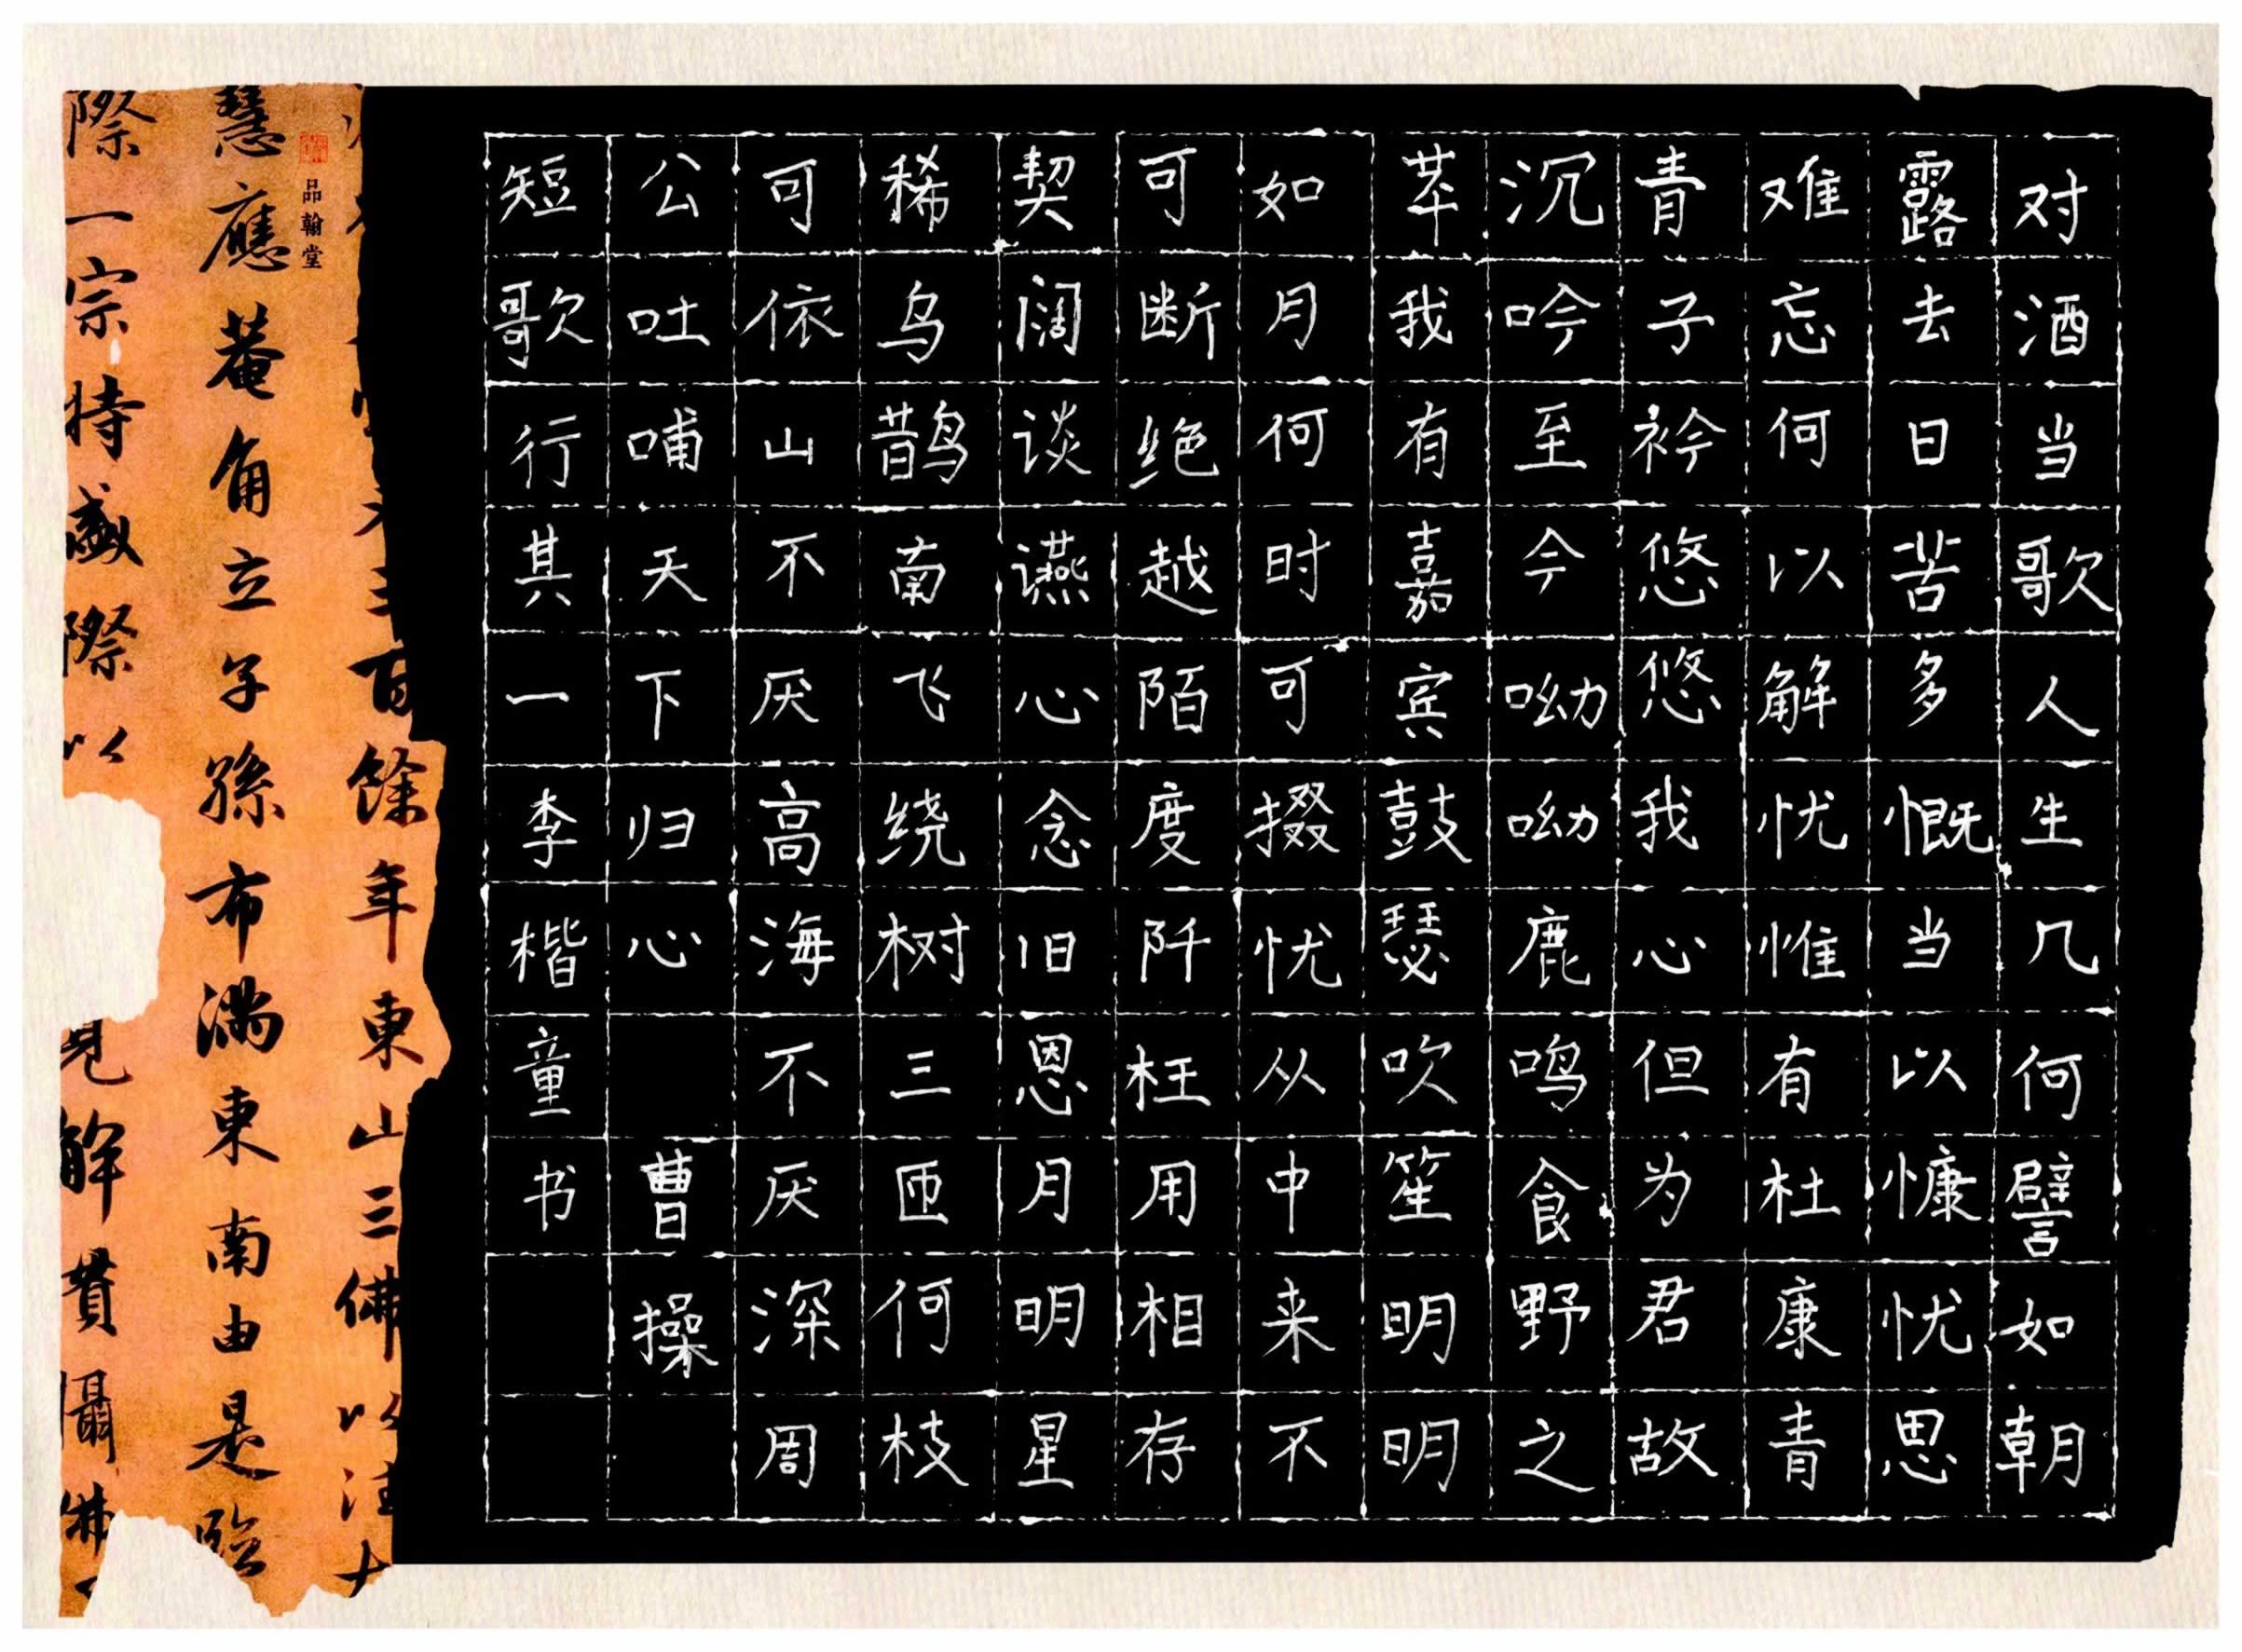 对酒当歌人生几何譬如朝
露去日苦多慨当以慷忧思
难忘何以解忧惟有杜康青
青子衿悠悠我心但为君故
沉吟至今呦呦鹿鸣食野之
苹我有嘉宾鼓瑟吹笙明明
如月何时可掇忧从中来不
可断绝越陌度阡枉用相存
契阔谈䜩心念旧恩月明星
稀乌鹊南飞绕树三匝何枝
可依山不厌高海不厌深周
公吐哺天下归心 曹操
短歌行其一李楷童书
百餘年東山三佛以
品翰堂
慧應菴角立子孫布滿東南由是臨
際一宗特盛際以 見解貫攝佛